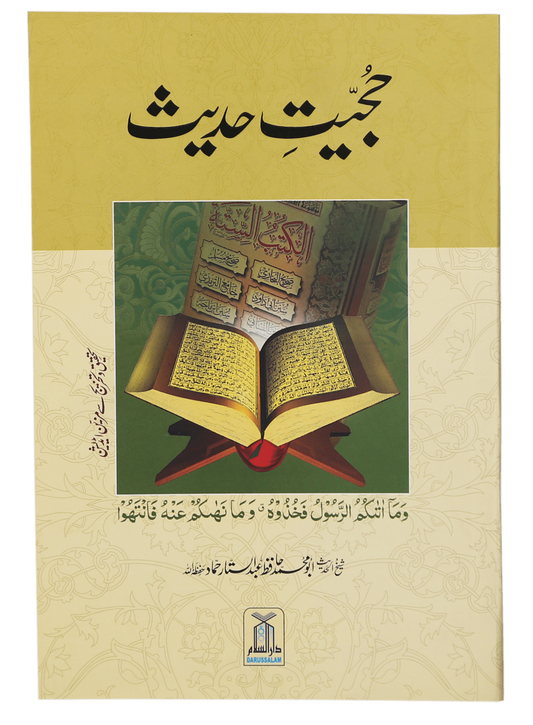 حُجیّتِ حدیث
الکتب الستة
صحیح البخاری
صحیح مسلم
سنن ابی داود
جامع الترمذی
سنن ابن ماجه
تحقیق و تخریج سے مزین ایڈیشن
وَمَآ اٰتٰىكُمُ الرَّسُوْلُ فَخُذُوْهُ ۗ وَمَا نَهٰىكُمْ عَنْهُ فَانْتَهُوْا
شیخ الحدیث ابو محمد حافظ عبدالستار حماد حفظہ اللہ
دارالسلام
DARUSSALAM